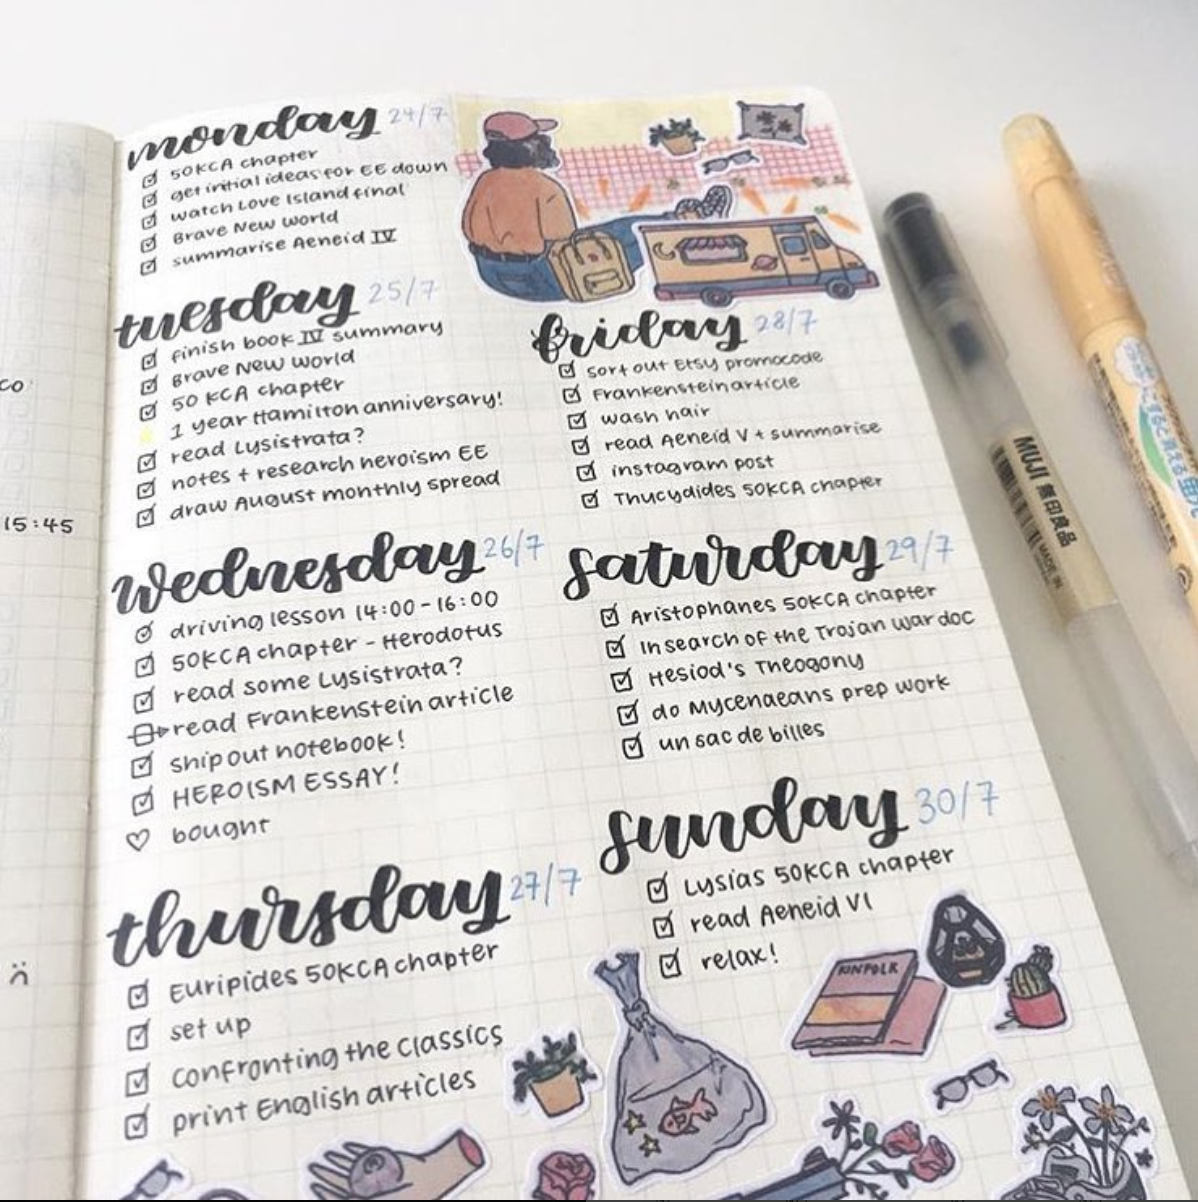 co
15:45
monday 24/7
50KCA chapter
get initial ideas for EE down
watch Love Island final
Brave New World
summarise Aeneid IV
tuesday 25/7
finish book IV summary
Brave New World
50 KCA chapter
1 year Hamilton anniversary!
read Lysistrata?
notes + research heroism EE
draw August monthly spread
wednesday 26/7
driving lesson 14:00-16:00
50KCA chapter - Herodotus
read some Lysistrata?
read Frankenstein article
ship out notebook!
HEROISM ESSAY!
bought
thursday 27/7
Euripides 50KCA chapter
set up
confronting the Classics
print English articles
friday 28/7
sort out Etsy promocode
Frankenstein article
wash hair
read Aeneid V + summarise
instagram post
Thucydides 50KCA chapter
saturday 29/7
Aristophanes 50KCA chapter
In search of the Trojan war doc
Hesiod's Theogony
do Mycenaeans prep work
un sac de billes
sunday 30/7
Lysias 50KCA chapter
read Aeneid VI
relax!
KINFOLK
MUJI 無印良品
MADE IN